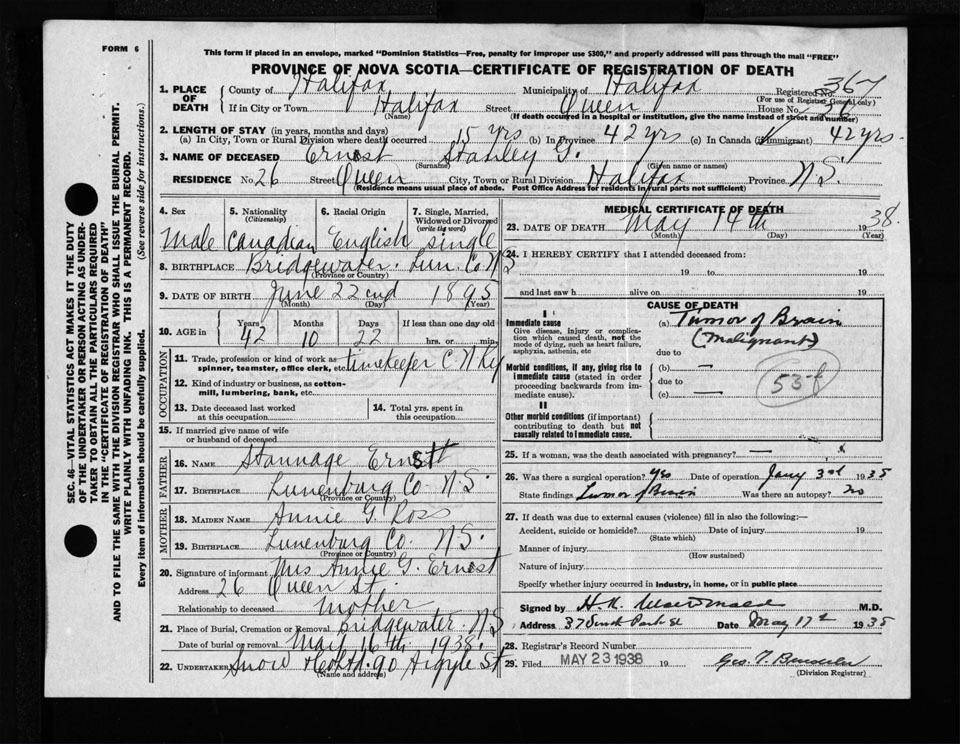 FORM 6
This form if placed in an envelope, marked "Dominion Statistics—Free, penalty for improper use $300," and properly addressed will pass through the mail "FREE"
PROVINCE OF NOVA SCOTIA—CERTIFICATE OF REGISTRATION OF DEATH
1. PLACE OF DEATH County of Halifax Municipality of Halifax Registered No. 367
(For use of Registrar General only)
If in City or Town Halifax Street Queen House No. 26
(Name) (If death occurred in a hospital or institution, give the name instead of street and number)
2. LENGTH OF STAY (in years, months and days)
(a) In City, Town or Rural Division where death occurred 15 yrs (b) In Province 42 yrs (c) In Canada (if immigrant) 42 yrs.
3. NAME OF DECEASED Ernst Stanley G.
(Surname) (Given name or names)
RESIDENCE No. 26 Street Queen City, Town or Rural Division Halifax Province N.S.
(Residence means usual place of abode. Post Office Address for residents in rural parts not sufficient)
4. Sex 5. Nationality (Citizenship) 6. Racial Origin 7. Single, Married, Widowed or Divorced (write the word)
Male Canadian English single
8. BIRTHPLACE Bridgewater. Lun. Co. NS
(Province or Country)
9. DATE OF BIRTH June 22nd 1895
(Month) (Day) (Year)
10. AGE in Years Months Days If less than one day old
42 10 22 hrs. or min.
OCCUPATION
11. Trade, profession or kind of work as spinner, teamster, office clerk, etc. timekeeper C N Ry
12. Kind of industry or business, as cotton-mill, lumbering, bank, etc.
13. Date deceased last worked at this occupation 14. Total yrs. spent in this occupation
15. If married give name of wife or husband of deceased
FATHER
16. NAME Stannage Ernst
17. BIRTHPLACE Lunenburg Co. N.S.
(Province or Country)
MOTHER
18. MAIDEN NAME Annie G. Ross
19. BIRTHPLACE Lunenburg Co. N.S.
(Province or Country)
20. Signature of informant Mrs Annie G. Ernst
Address 26 Queen St.
Relationship to deceased Mother
21. Place of Burial, Cremation or Removal Bridgewater. NS
Date of burial or removal May 16th 1938.
22. UNDERTAKER Snow & Co Ltd. 90 Argyle St
(Name and address)
MEDICAL CERTIFICATE OF DEATH
23. DATE OF DEATH May 14th 1938.
(Month) (Day) (Year)
24. I HEREBY CERTIFY that I attended deceased from:
19 to 19
and last saw h alive on 19
CAUSE OF DEATH
I
Immediate cause
Give disease, injury or complication which caused death, not the mode of dying, such as heart failure, asphyxia, asthenia, etc
(a) Tumor of Brain
(Malignant)
due to
Morbid conditions, if any, giving rise to immediate cause (stated in order proceeding backwards from immediate cause).
(b) —
due to
(c) —
53-f
II
Other morbid conditions (if important) contributing to death but not causally related to immediate cause.
25. If a woman, was the death associated with pregnancy? —
26. Was there a surgical operation? yes Date of operation Jany 3rd 1935
State findings Tumor of Brain Was there an autopsy? no
27. If death was due to external causes (violence) fill in also the following:—
Accident, suicide or homicide? Date of injury 19
(State which)
Manner of injury
(How sustained)
Nature of injury
Specify whether injury occurred in industry, in home, or in public place
Signed by H.K. M.D.
Address 37 Park St Date May 17th 1935
28. Registrar's Record Number
29. Filed MAY 23 1938 19 Geo. T.
(Division Registrar)
SEC. 46—VITAL STATISTICS ACT MAKES IT THE DUTY
OF THE UNDERTAKER OR PERSON ACTING AS UNDERTAKER
TAKER TO OBTAIN ALL THE PARTICULARS REQUIRED
IN THE "CERTIFICATE OF REGISTRATION OF DEATH"
AND TO FILE THE SAME WITH THE DIVISION REGISTRAR WHO SHALL ISSUE THE BURIAL PERMIT.
WRITE PLAINLY WITH UNFADING INK. THIS IS A PERMANENT RECORD.
Every item of information should be carefully supplied. (See reverse side for instructions.)